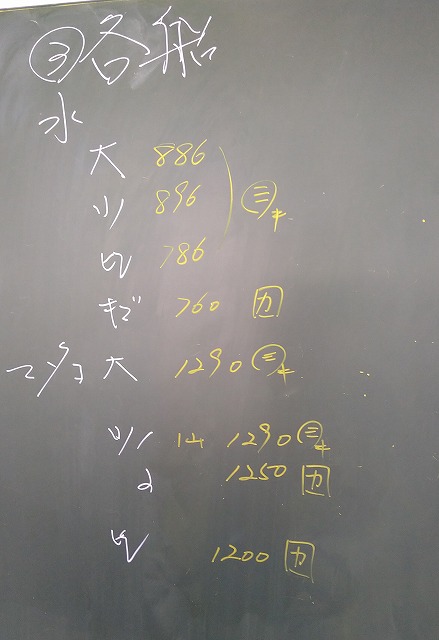 ③各船
水
大 886
ツ 896 ㊂キ
ヒ 786
キズ 760 カ
マダコ 大 1290 ㊂キ
ツ 14 1290 ㊂キ
2 1250 カ
ヒ 1200 カ